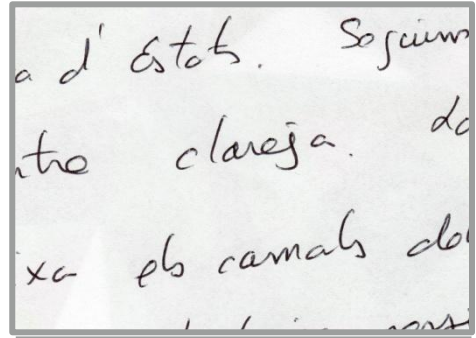 a d'Estats. Seguim
ntre clareja.
ixa els camals del